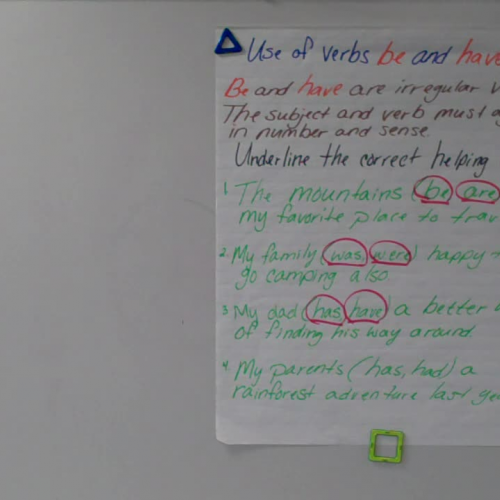 Use of verbs be and have
Be and have are irregular
The subject and verb must
in number and sense.
Underline the correct helping
1. The mountains (be, are)
my favorite place to
2. My family (was, were) happy
go camping also.
3. My dad (has, have) a better
of finding his way around.
4. My parents (has, had) a
rainforest adventure last